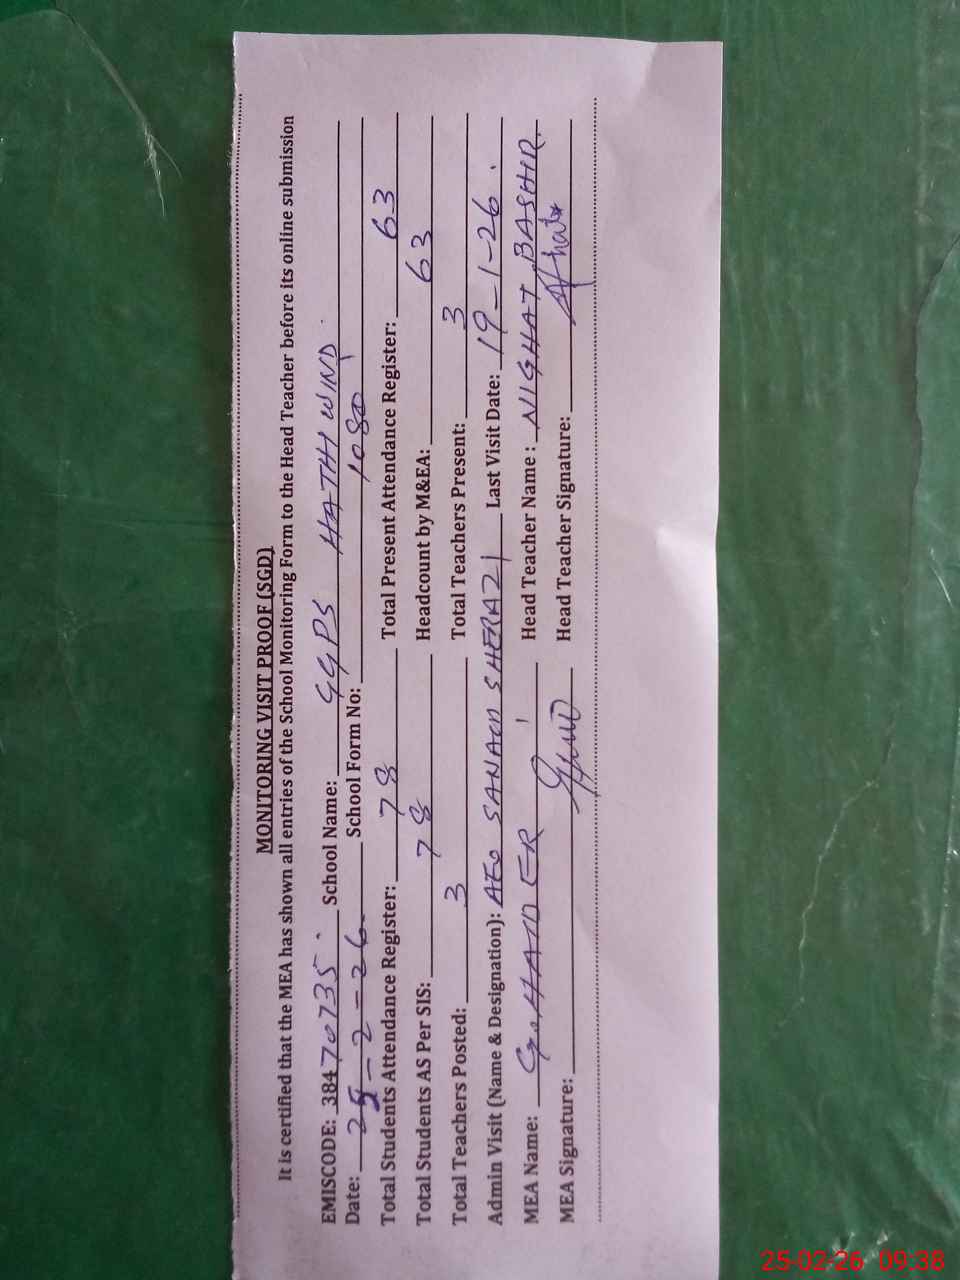 MONITORING VISIT PROOF (SGD)
It is certified that the MEA has shown all entries of the School Monitoring Form to the Head Teacher before its online submission
EMISCODE: 38470735. School Name: GGPS HATHI WIND.
Date: 25-2-26. School Form No: 1080
Total Students Attendance Register: 78 Total Present Attendance Register: 63
Total Students AS Per SIS: 78 Headcount by M&EA: 63
Total Teachers Posted: 3 Total Teachers Present: 3
Admin Visit (Name & Designation): AEO SHERAZI Last Visit Date: 19-1-26.
MEA Name: G. HAIDER Head Teacher Name: NIGHAT BASHIR.
MEA Signature: Head Teacher Signature:
25-02-26 09:38